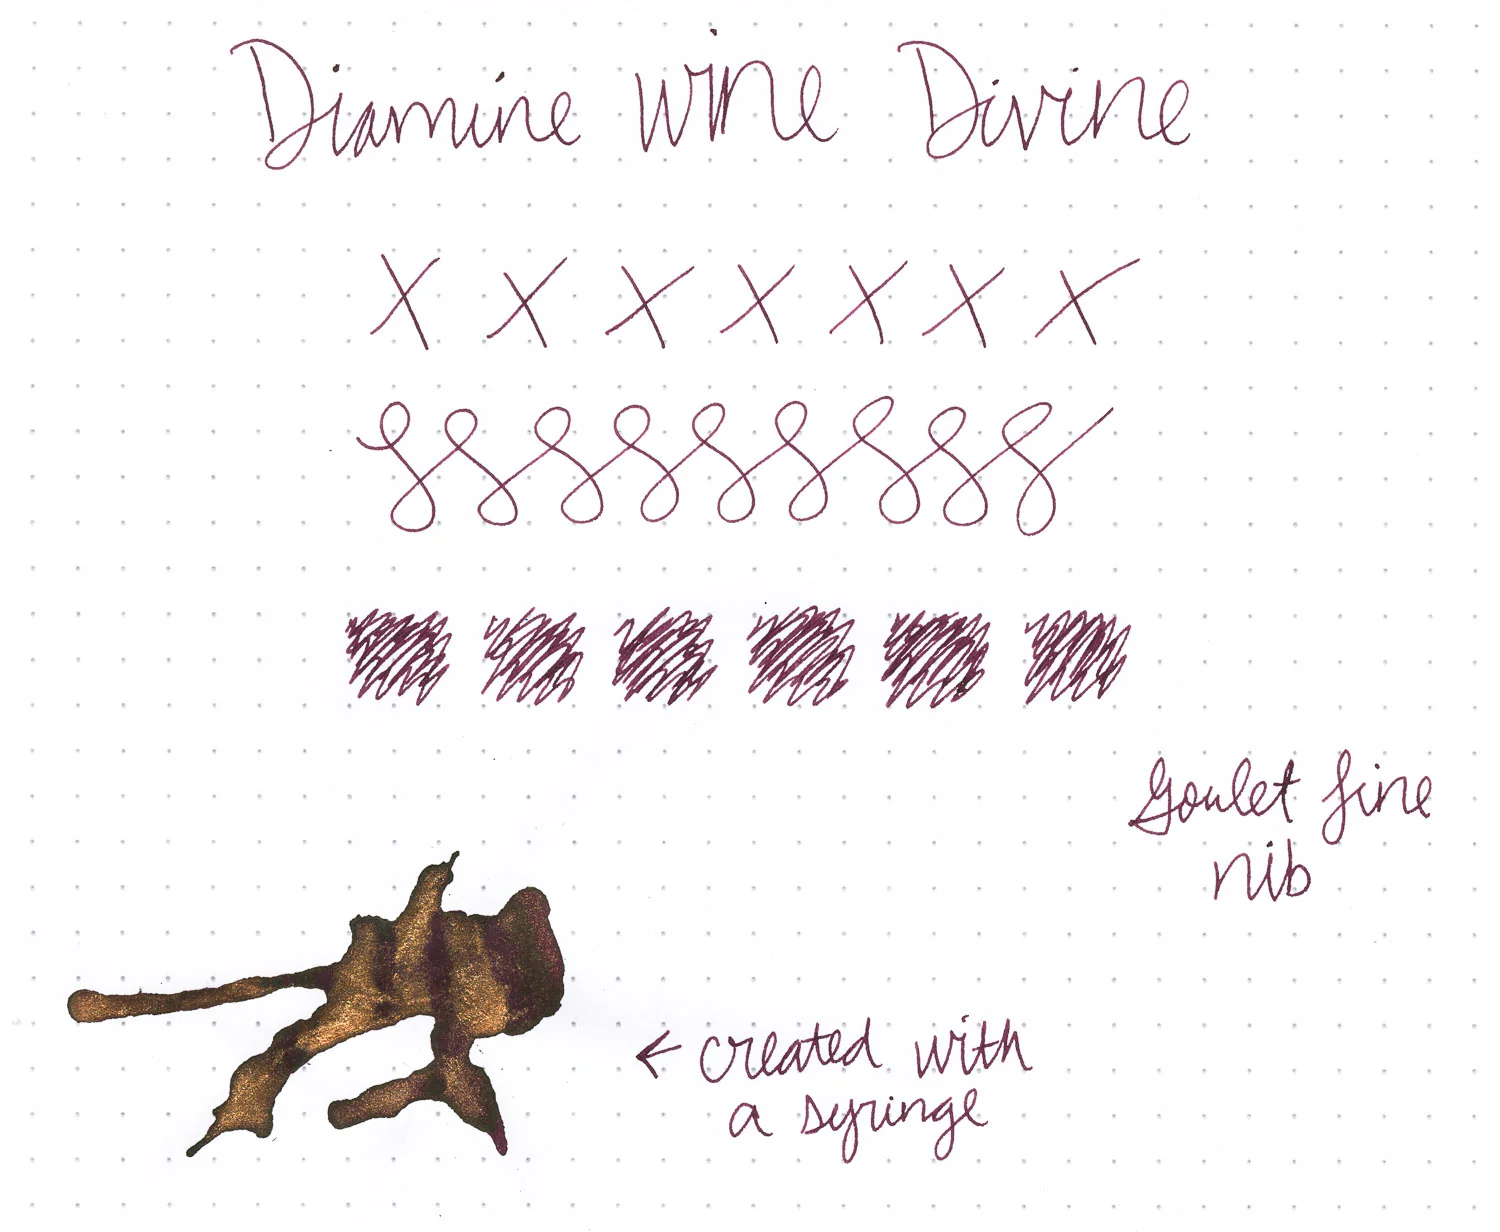 Diamine Wine Divine
X X X X X X X
Goulet fine
nib
← created with
a syringe